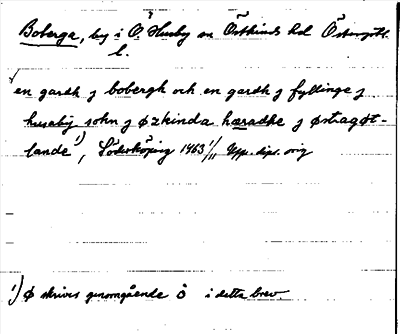 Boberga, by i Ö Husby sn Östkinds hd Östergötl.
l.
en gardh j bobergh och en gardh j fyllinge j
husaby sokn j øzkinda hæradhe j østragøt-
lande¹), Söderköping 1463 1/11 Upps. dipl. orig
¹) Ø skrives genomgående ö i detta brev.